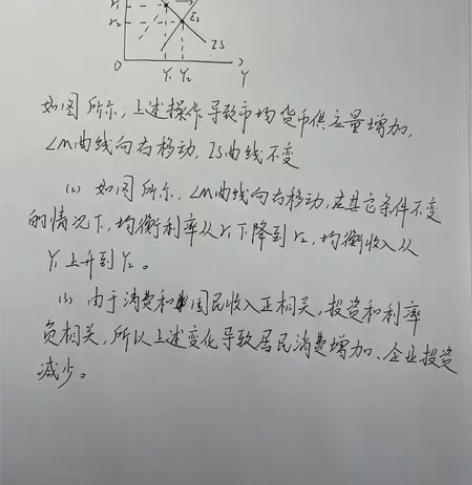 r₁
r₂
E₂
IS
O
Y₁ Y₂
Y
如图所示，上述操作导致市场货币供应量增加，
LM曲线向右移动，IS曲线不变
(2) 如图所示，LM曲线向右移动，在其它条件不变
的情况下，均衡利率从r₁下降到r₂，均衡收入从
Y₁上升到Y₂。
(3) 由于消费和国民收入正相关，投资和利率
负相关，所以上述变化导致居民消费增加、企业投资
减少。